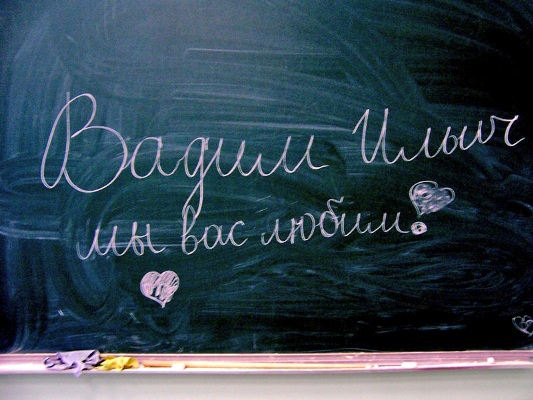 Вадим Ильич
мы вас любим!